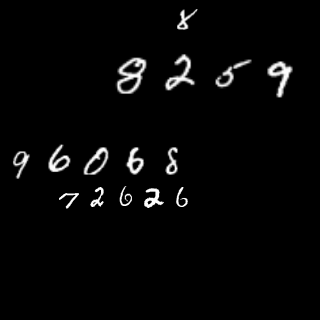 8
8259
96068
72626